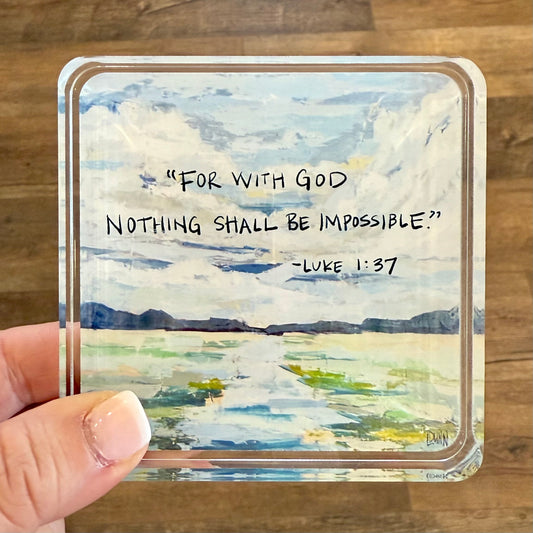 “FOR WITH GOD
NOTHING SHALL BE IMPOSSIBLE.”
-LUKE 1:37